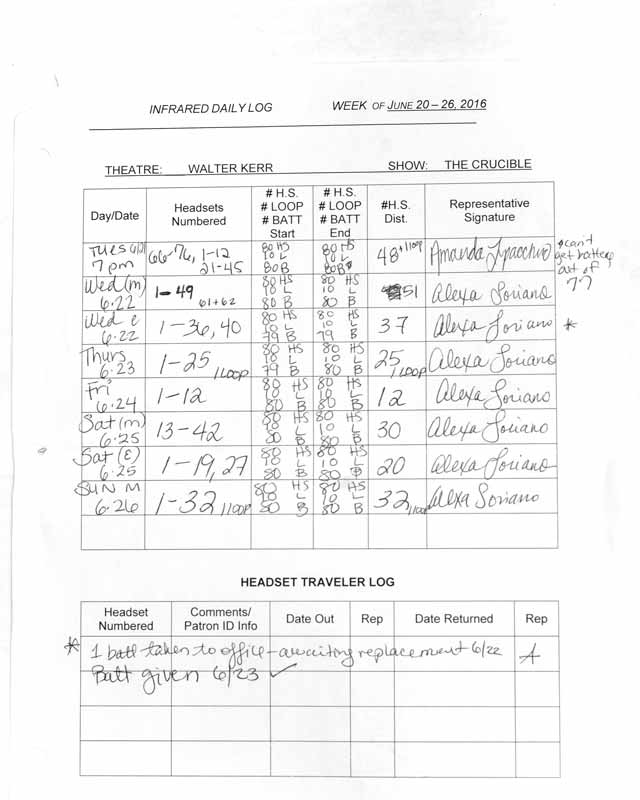 INFRARED DAILY LOG WEEK OF JUNE 20 – 26, 2016
THEATRE: WALTER KERR SHOW: THE CRUCIBLE
Day/Date Headsets Numbered # H.S. # LOOP # BATT Start # H.S. # LOOP # BATT End #H.S. Dist. Representative Signature
Tues 6/21 7pm 66-76, 1-12 21-45 80 HS 10 L 80 B 80 HS 10 L 80 B 48 + 1 loop Amanda
can't get battery out of 77
Wed (m) 6.22 1-49 61+62 80 HS 10 L 80 B 80 HS 10 L 80 B 51 Alexa Soriano
Wed e 6.22 1-36, 40 80 HS 10 L 79 B 80 HS 10 L 79 B 37 Alexa Soriano *
Thurs 6.23 1-25 1 LOOP 80 HS 10 L 79 B 80 HS 10 L 80 B 25 1 LOOP Alexa Soriano
Fri 6.24 1-12 80 HS 10 L 80 B 80 HS 10 L 80 B 12 Alexa Soriano
Sat (m) 6.25 13-42 80 HS 10 L 80 B 80 HS 10 L 80 B 30 Alexa Soriano
Sat (E) 6.25 1-19, 27 80 HS 10 L 80 B 80 HS 10 L 80 B 20 Alexa Soriano
SUN M 6.26 1-32 1 LOOP 80 HS 10 L 80 B 80 HS 10 L 80 B 32 1 LOOP Alexa Soriano
HEADSET TRAVELER LOG
Headset Numbered Comments/ Patron ID Info Date Out Rep Date Returned Rep
* 1 batt taken to office - awaiting replacement 6/22 A
Batt given 6/23 ✓